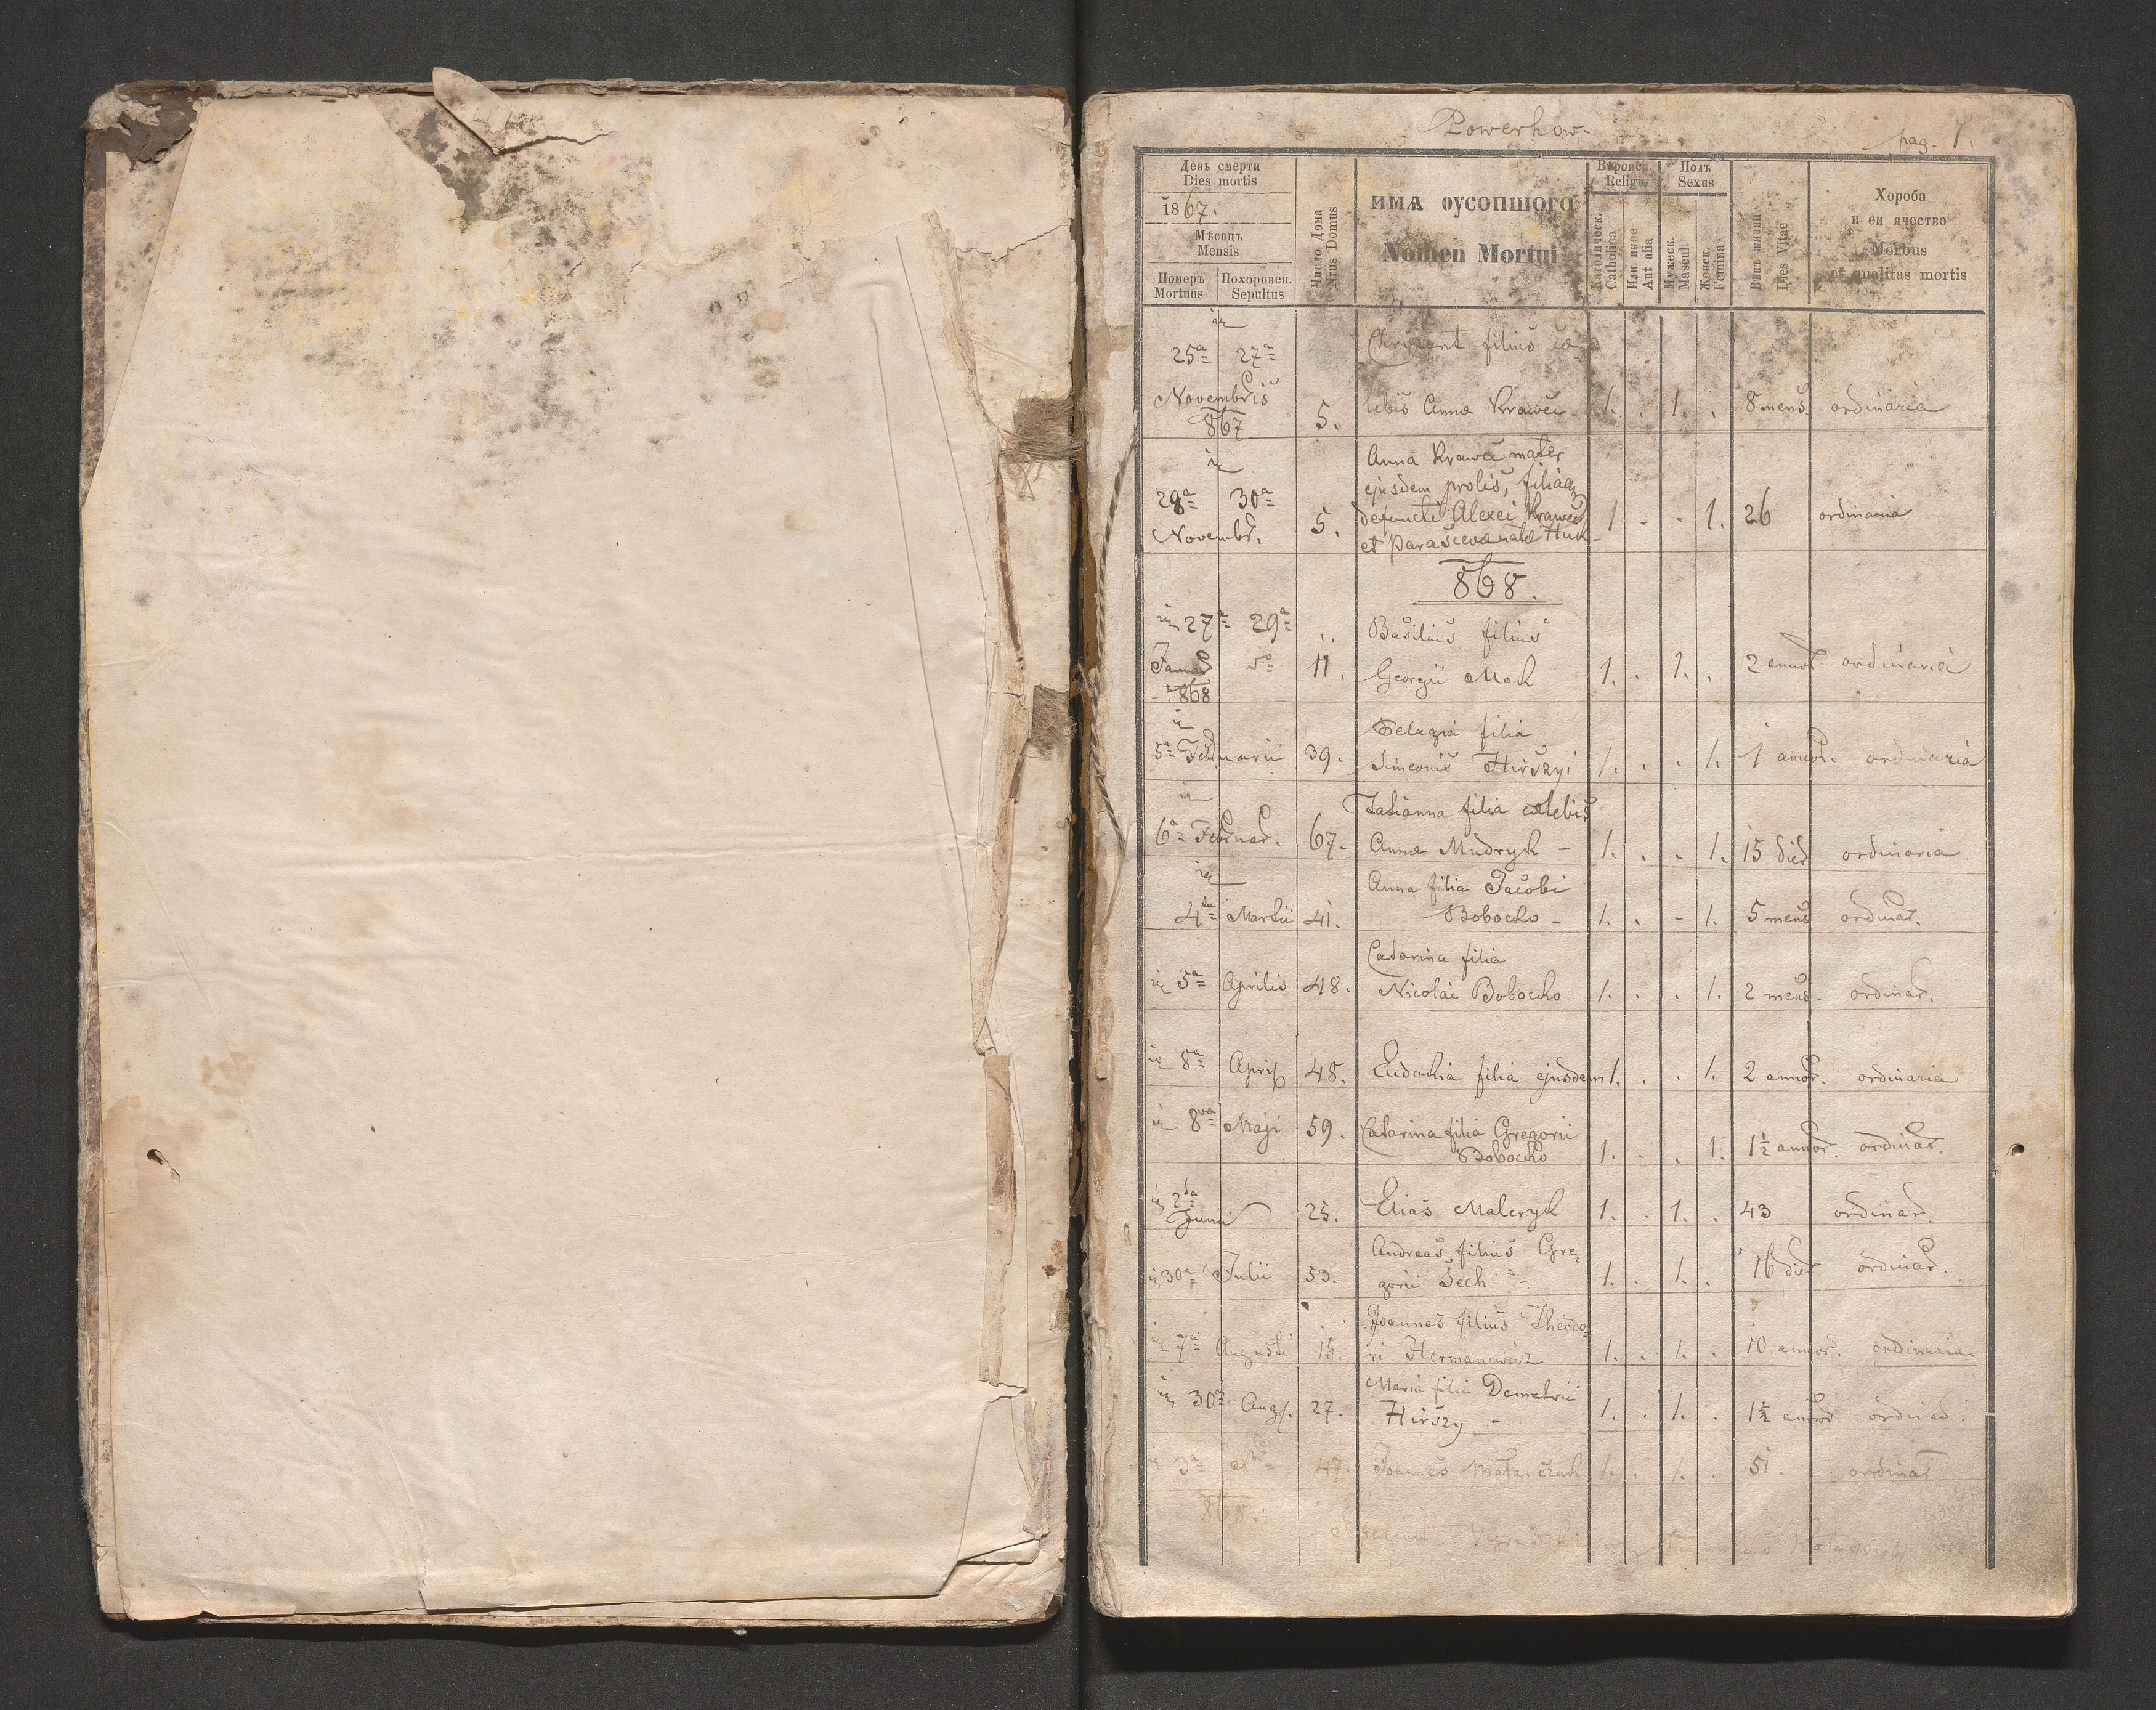 Powerhow-
pag. 1.
День смерти
Dies mortis
1867.
Мѣсяцъ
Mensis
Номеръ Mortuus
Похоронен. Sepultus
Число Дома
Nrus Domus
ИМѦ ОУСОПШОГО
Nomen Mortui
Вѣроисп.
Religio
Католическ.
Catholica
Или иное
Aut alia
Полъ
Sexus
Мужеск.
Mascul.
Женск.
Femina
Вѣкъ жизни
Dies Vitae
Хороба
и еи ячество
Morbus
et qualitas mortis
25ª 27ª Novembris 867 5. Chrizant filius cæ-
lebis Annæ Krawec 1. . 1. . 8 mens. ordinaria
Anna Krawec mater
ejusdem prolis, filia
28ª 30ª defuncti Alexei Krawec
Novembr. 5. et Parascevæ natæ Huk 1 - - 1. 26 ordinaria
868.
in 27ª 29ª Basilius filius
Januar 868 11. Georgii Mach 1. . 1. . 2 annor ordinaria
in Pelagia filia
5ª Februarii 39. Simeonis Hirszyi 1. . . 1. 1 annor. ordinaria
in Tatianna filia cælebis
6ª Februar. 67. Annæ Mudryk - 1. . . 1. 15 dier ordinaria
in Anna filia Jacobi
4ta Martii 41. Boboczko - 1. . - 1. 5 mens ordinar.
Catarina filia
in 5ª Aprilis 48. Nicolai Boboczko 1. . . 1. 2 mens. ordinar.
in 8ª April 48. Eudokia filia ejusdem 1. . . 1. 2 annor. ordinaria
in 8va Maji 59. Catarina filia Gregorii
Boboczko 1. . . 1. 1½ annor. ordinar.
in 2da Junii 25. Elias Maleryk 1. . 1. . 43 ordinar.
Andreas filius Gre-
in 30ª Julii 53. gorii Sech - 1. . 1. . 16 dier ordinar.
Joannes filius Theodo-
in 7ª Augusti 15. ri Hermanowicz 1. . 1. . 10 annor. ordinaria.
Maria filia Demetrii
in 30ª Aug. 27. Hirszy - 1. . 1. . 1½ annor ordinar.
in 3ª 47. Joannes 1. . 1. . 51. ordinar
868.